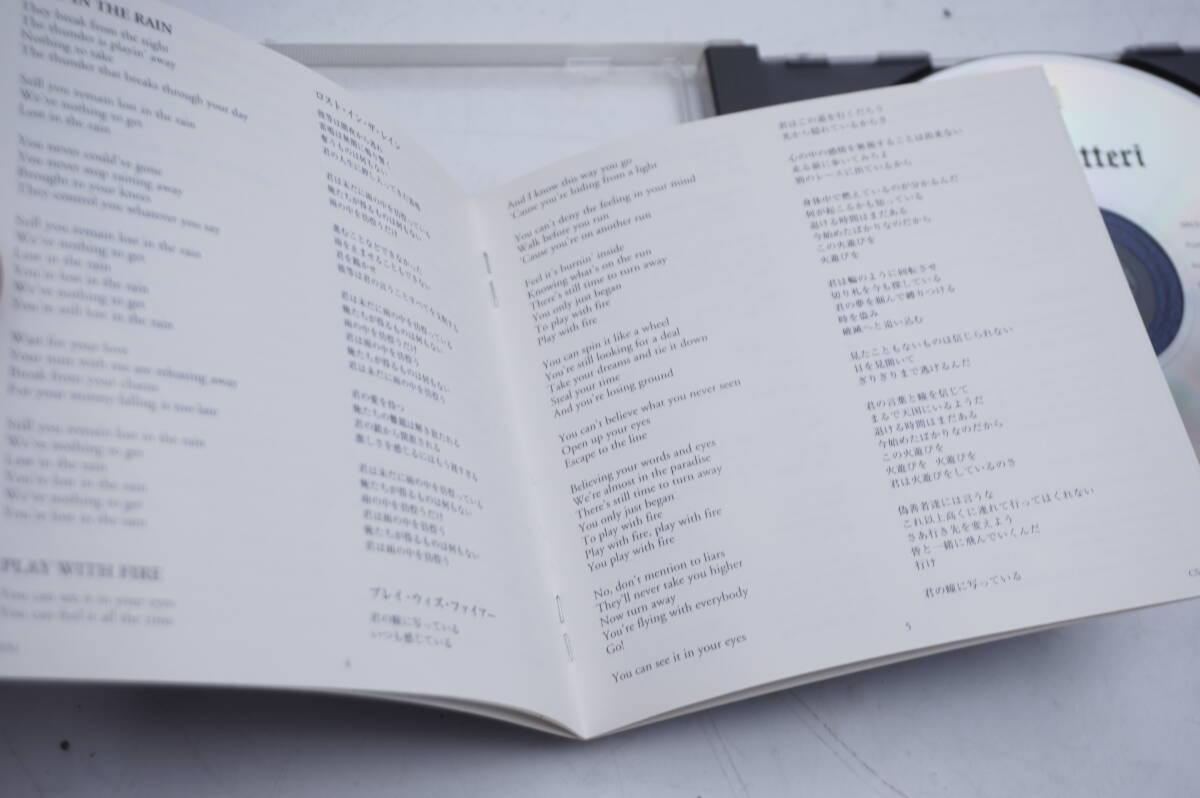 IN THE RAIN
They break from the night
The thunder is playin' away
Nothing to take
The thunder that breaks through your day
Still you remain lost in the rain
We've nothing to get
Lost in the rain
You never could've gone
You never stop turning away
Brought to your knees
They control you whatever you say
Still you remain lost in the rain
We've nothing to get
Lost in the rain
You're lost in the rain
We've nothing to get
You're still lost in the rain
Wait for your love
Break from your chains
Still you remain lost in the rain
We've nothing to get
Lost in the rain
You're lost in the rain
We've nothing to get
You're lost in the rain
PLAY WITH FIRE
You can see it in your eyes
You can feel it all the time
ロスト・イン・ザ・レイン
奪うものは何もない
君は未だに雨の中を彷徨っている
俺たちが得るものは何もない
雨の中を彷徨うだけ
進むことなどできなかった
君を跪かせ
彼等は君の言うことすべてを支配する
君は未だに雨の中を彷徨っている
俺たちが得るものは何もない
雨の中を彷徨うだけ
君は雨の中を彷徨う
俺たちが得るものは何もない
君は未だに雨の中を彷徨う
君の愛を待つ
君の鎖から開放される
君は未だに雨の中を彷徨っている
俺たちが得るものは何もない
雨の中を彷徨うだけ
君は雨の中を彷徨う
俺たちが得るものは何もない
君は雨の中を彷徨う
プレイ・ウィズ・ファイアー
君の瞳に写っている
いつも感じている
4
And I know this way you go
'Cause you're hiding from a light
You can't deny the feeling in your mind
Walk before you run
'Cause you're on another run
Feel it's burnin' inside
Knowing what's on the run
There's still time to turn away
You only just began
To play with fire
Play with fire
You can spin it like a wheel
You're still looking for a deal
Take your dreams and tie it down
Steal your time
And you're losing ground
You can't believe what you never seen
Open up your eyes
Escape to the line
Believing your words and eyes
We're almost in the paradise
There's still time to turn away
You only just began
To play with fire
Play with fire, play with fire
You play with fire
No, don't mention to liars
They'll never take you higher
Now turn away
You're flying with everybody
Go!
You can see it in your eyes
君はこの道を行くだろう
光から隠れているからさ
心の中の感情を無視することは出来ない
走る前に歩いてみろよ
別のレースに出ているから
身体中で燃えているのが分かるんだ
何が起こるかも知っている
退ける時間はまだある
今始めたばかりなのだから
この火遊びを
火遊びを
君は輪のように回転させ
切り札を今も探している
君の夢を掴んで縛りつける
時を盗み
破滅へと追い込む
見たこともないものは信じられない
目を見開いて
ぎりぎりまで逃げるんだ
君の言葉と瞳を信じて
まるで天国にいるようだ
退ける時間はまだある
今始めたばかりなのだから
この火遊びを
火遊びを 火遊びを
君は火遊びをしているのさ
偽善者達には言うな
これ以上高くに連れて行ってはくれない
さあ行き先を変えよう
皆と一緒に飛んでいくんだ
行け
君の瞳に写っている
5
tteri